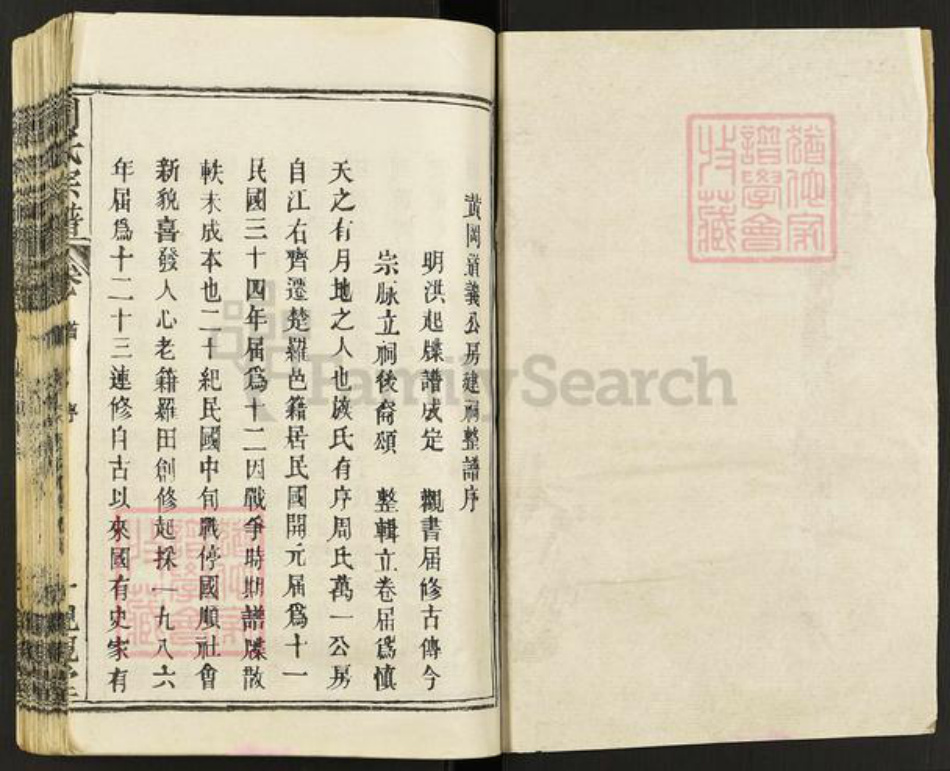 黃岡道義公房建祠整譜序
明洪起牒譜成定　觀書届修古傳今
宗脉立祠後裔頌　整輯立卷届為慎
天之有月地之人也族氏有序周氏萬一公房
自江右齊遷楚羅邑籍居民國開元届為十一
民國三十四年届為十二因戰争時期譜牒散
軼未成本也二十紀民國中旬戰停國順社會
新貌喜發人心老籍羅田創修起採一九八六
年届爲十二十三連修自古以來國有史家有
氏宗譜
卷
首
序
FamilySearch
猶他家
譜學會
收藏
猶他家
譜學會
收藏